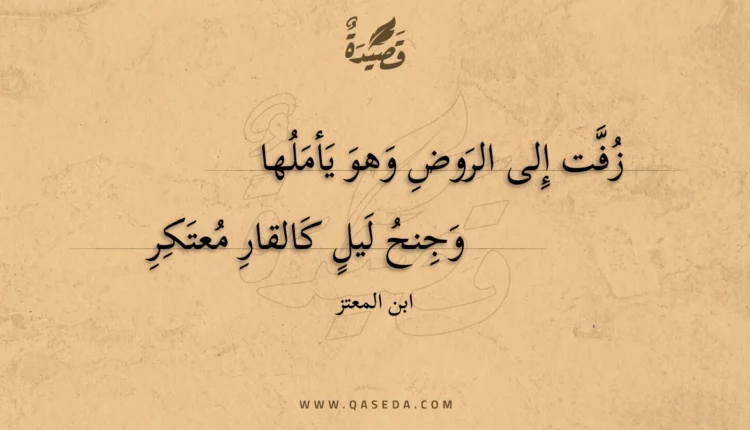 قَصِيْدَةٌ
زُفَّت إِلى الرَوضِ وَهوَ يَأمَلُها
وَجِنحُ لَيلٍ كَالقارِ مُعتَكِرِ
ابن المعتز
WWW.QASEDA.COM